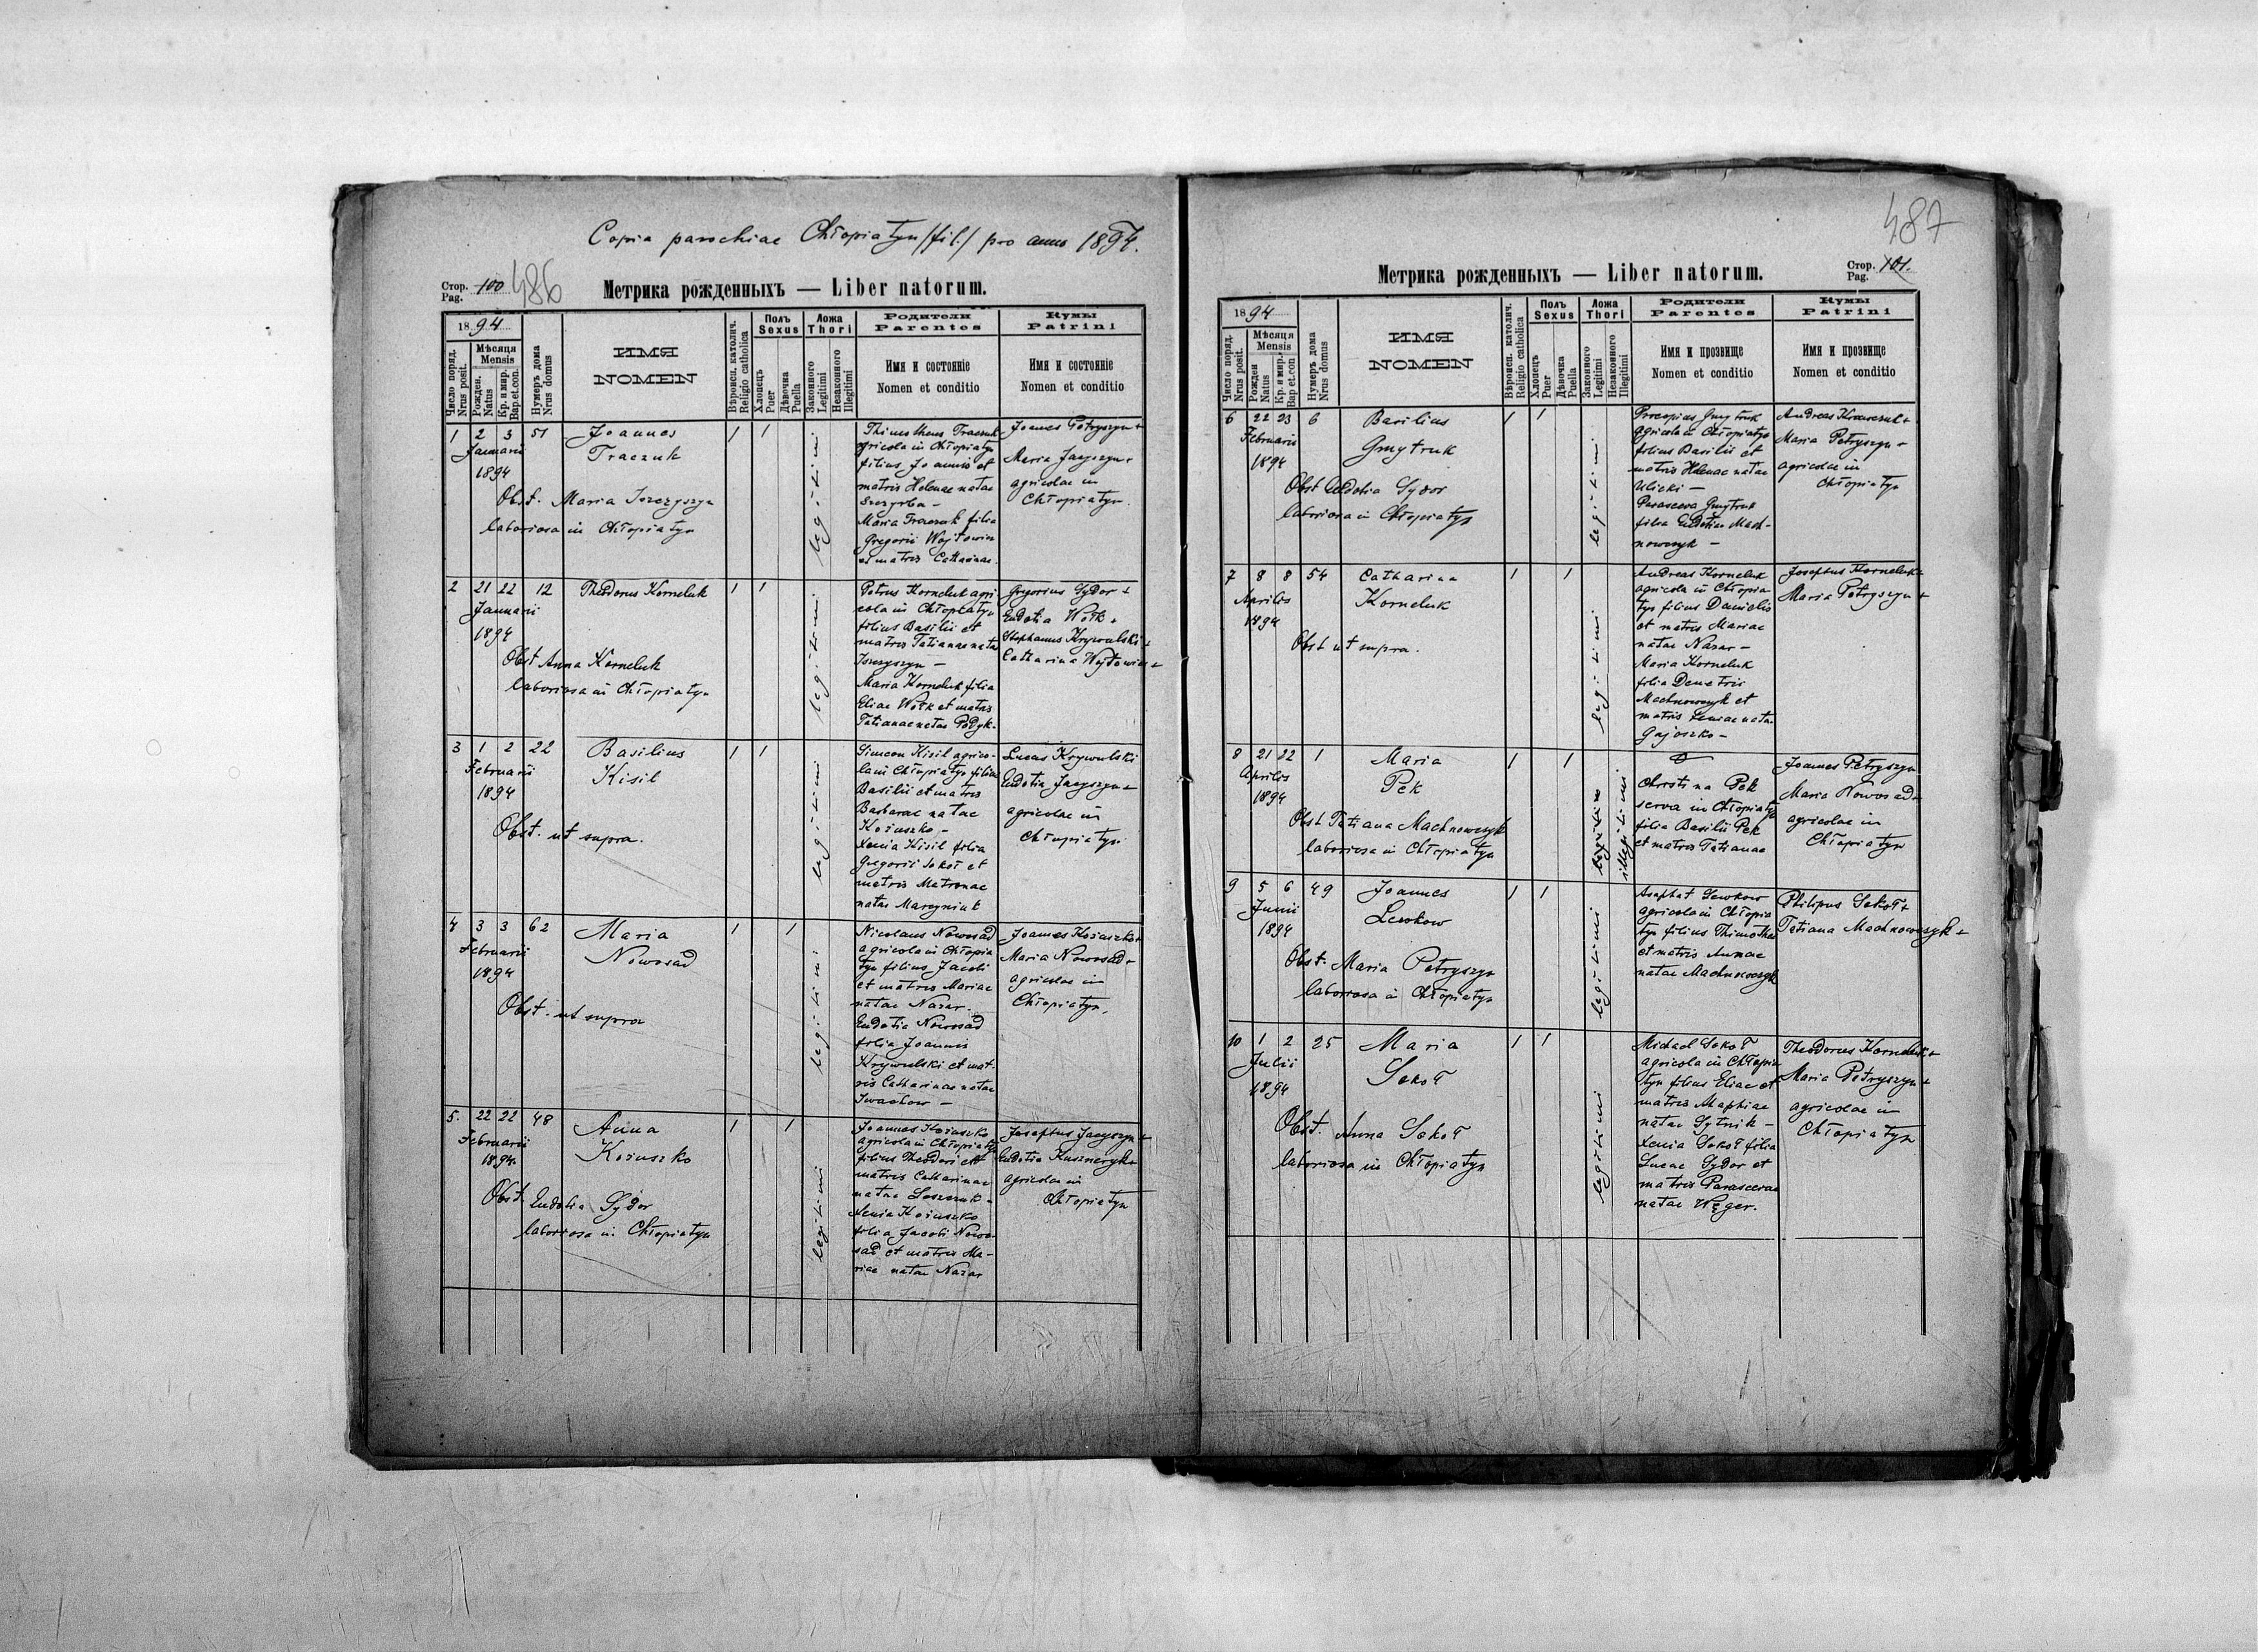 Copia parochiae Chłopiatyn /fil./ pro anno 1894.
Стор. Pag. 100 486
Метрика рожденныхъ — Liber natorum.
1894
Число поряд. Nrus posit.
Мѣсяця Mensis
Рожден. Natus
Кр. и мир. Bap. et con.
Нумеръ дома Nrus domus
ИМЯ
NOMEN
Вѣроисп. католич. Religio catholica
Полъ Sexus
Хлопецъ Puer
Дѣвочка Puella
Ложа Thori
Законного Legitimi
Незаконного Illegitimi
Родители
Parentes
Имя и состоянie
Nomen et conditio
Кумы
Patrini
Имя и состоянie
Nomen et conditio
1 2 3 51 Joannes 1 1
Januarii Traczuk
1894
Obst. Maria
laboriosa in Chłopiatyn
legitimi
Thimotheus Traczuk
agricola in Chłopiatyn
filius Joannis et
matris Helenae natae
Szczyrba —
Maria Traczuk filia
Gregorii Wojtowicz
et matris Catharinae.
Joannes Petryszyn +
Maria Jaryszyn +
agricolae in
Chłopiatyn.
2 21 22 12 Theodorus Korneluk 1 1
Januarii
1894
Obst Anna Korneluk
laboriosa in Chłopiatyn
legitimi
Petrus Korneluk agri
cola in Chłopiatyn
filius Basilii et
matris Tatianae natae
Maria Korneluk filia
Eliae Wołk et matris
Tatianae natae
Gregorius Sydor +
Eudotia Wołk +
Stephanus Krywulski +
Catharina Wojtowicz +
3 1 2 22 Basilius 1 1
Februarii Kisil
1894
Obst. ut supra.
legitimi
Simeon Kisil agrico-
la in Chłopiatyn filius
Basilii et matris
Barbarae natae
Kożuszko —
Xenia Kisil filia
Gregorii Sokoł et
matris Matronae
natae Marcyniuk
Lucas Krywulski
Eudotia Jaryszyn +
agricolae in
Chłopiatyn
4 3 3 62 Maria 1 1
Februarii Nowosad
1894
Obst. ut supra
legitimi
Nicolaus Nowosad
agricola in Chłopia
tyn filius Jacobi
et matris Mariae
natae Nazar.
Eudotia Nowosad
filia Joannis
Krywulski et mat-
ris Catharinae natae
Iwachow —
Joannes Kożuszko +
Maria Nowosad +
agricolae in
Chłopiatyn.
5. 22 22 48 Anna 1 1
Februarii Kożuszko
1894
Obst. Eudotia Sydor
laboriosa in Chłopiatyn
legitimi
Joannes Kożuszko
agricola in Chłopiatyn
filius Theodori et
matris Catharinae
natae
Xenia Kożuszko
filia Jacobi Nowo-
sad et matris Ma-
riae natae Nazar
Josephus Jaryszyn +
Eudotia
agricolae in
Chłopiatyn
487
Стор. Pag. 101.
Метрика рожденныхъ — Liber natorum.
1894
Число поряд. Nrus posit.
Мѣсяця Mensis
Рожден Natus
Кр. и мир. Bap. et. con
Нумеръ дома Nrus domus
ИМЯ
NOMEN
Вѣроисп. католич. Religio catholica
Полъ Sexus
Хлопецъ Puer
Дѣвочка Puella
Ложа Thori
Законного Legitimi
Незаконного Illegitimi
Родители
Parentes
Имя и прозвище
Nomen et conditio
Кумы
Patrini
Имя и прозвище
Nomen et conditio
6 22 23 6 Basilius 1 1
Februarii Gmytruk
1894
Obst Eudotia Sydor
laboriosa in Chłopiatyn
legitimi
Procopius Gmytruk
agricola in Chłopiatyn
filius Basilii et
matris Helenae natae
Ulicki —
Parasceva Gmytruk
filia Eudotiae Mach-
nowczyk —
Andreas Krawczuk +
Maria Petryszyn +
agricolae in
Chłopiatyn
7 8 8 54 Catharina 1 1
Aprilis Korneluk
1894
Obst ut supra.
legitimi
Andreas Korneluk
agricola in Chłopia
tyn filius Danielis
et matris Mariae
natae Nazar —
Maria Korneluk
filia Demetrii
Machnowczyk et
matris Xeniae natae
Gajoszko —
Josephus Korneluk +
Maria Petryszyn +
8 21 22 1 Maria 1 1
Aprilis Pek
1894
Obst Tatiana Machnowczyk
laboriosa in Chłopiatyn
illegitimi
Christina Pek
serva in Chłopiatyn
filia Basilii Pek
et matris Tatianae
Joannes Petryszyn
Maria Nowosad +
agricolae in
Chłopiatyn
9 5 6 49 Joannes 1 1
Junii Lewkow
1894
Obst. Maria Petryszyn
laboriosa in Chłopiatyn
legitimi
Asaphat Lewkow
agricola in Chłopia
tyn filius Thimothei
et matris Annae
natae Machnowczyk
Philipus Sokoł +
Tatiana Machnowczyk +
10 1 2 25 Maria 1 1
Julii Sokoł
1894
Obst. Anna Sokoł
laboriosa in Chłopiatyn
legitimi
Michael Sokoł
agricola in Chłopia
tyn filius Eliae et
matris Maphiae
natae Sytnik —
Xenia Sokoł filia
Lucae Sydor et
matris Parascevae
natae Węger.
Theodorus Korneluk +
Maria Petryszyn +
agricolae in
Chłopiatyn